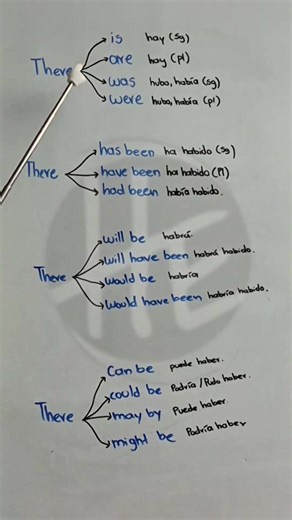 is hay (sg)
There are hay (pl)
was hubo, había (sg)
were hubo, había (pl)
has been ha habido (sg)
There have been ha habido (Pl)
had been había habido.
will be habrá.
will have been habrá habido.
There would be habría
would have been habría habido.
can be puede haber.
could be Podría / Pudo haber.
There may by Puede haber.
might be Podría haber